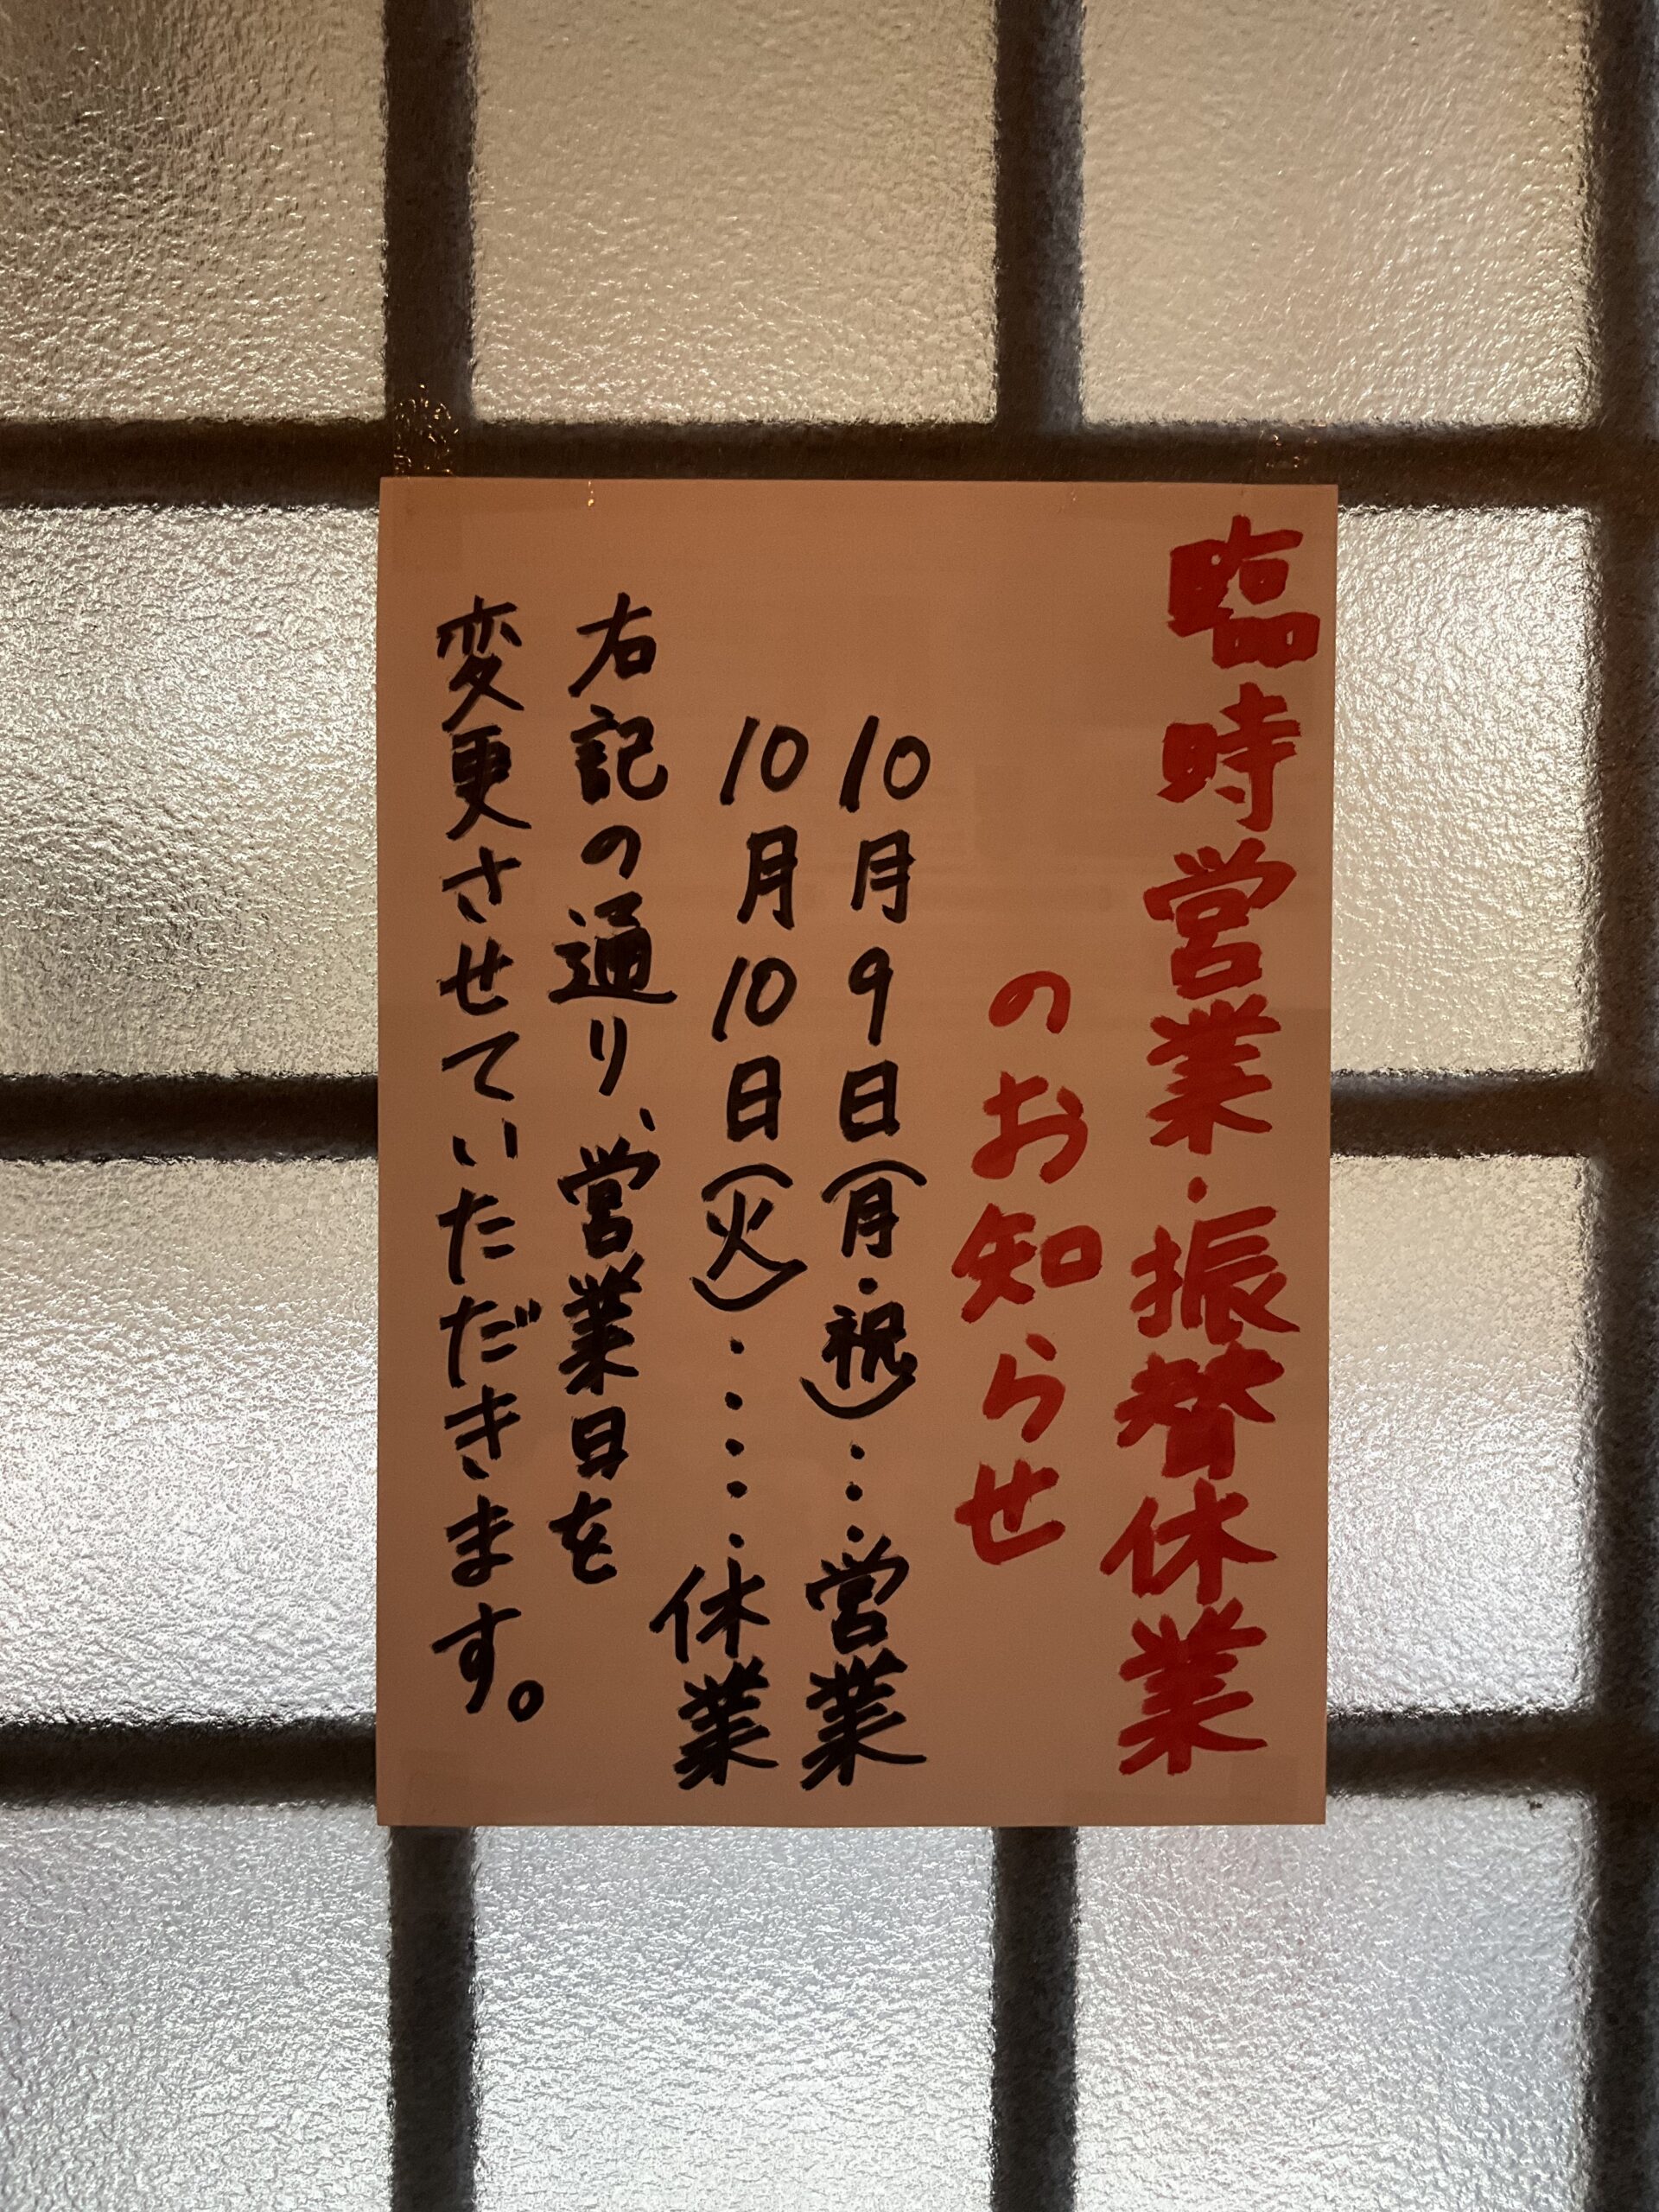 臨時営業・振替休業
のお知らせ
10月9日(月・祝)…営業
10月10日(火)……休業
右記の通り、営業日を
変更させていただきます。